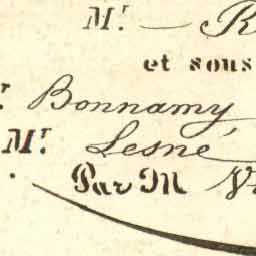 Mr.
et sous
Bonnamy
Mr. Lesné
Par M